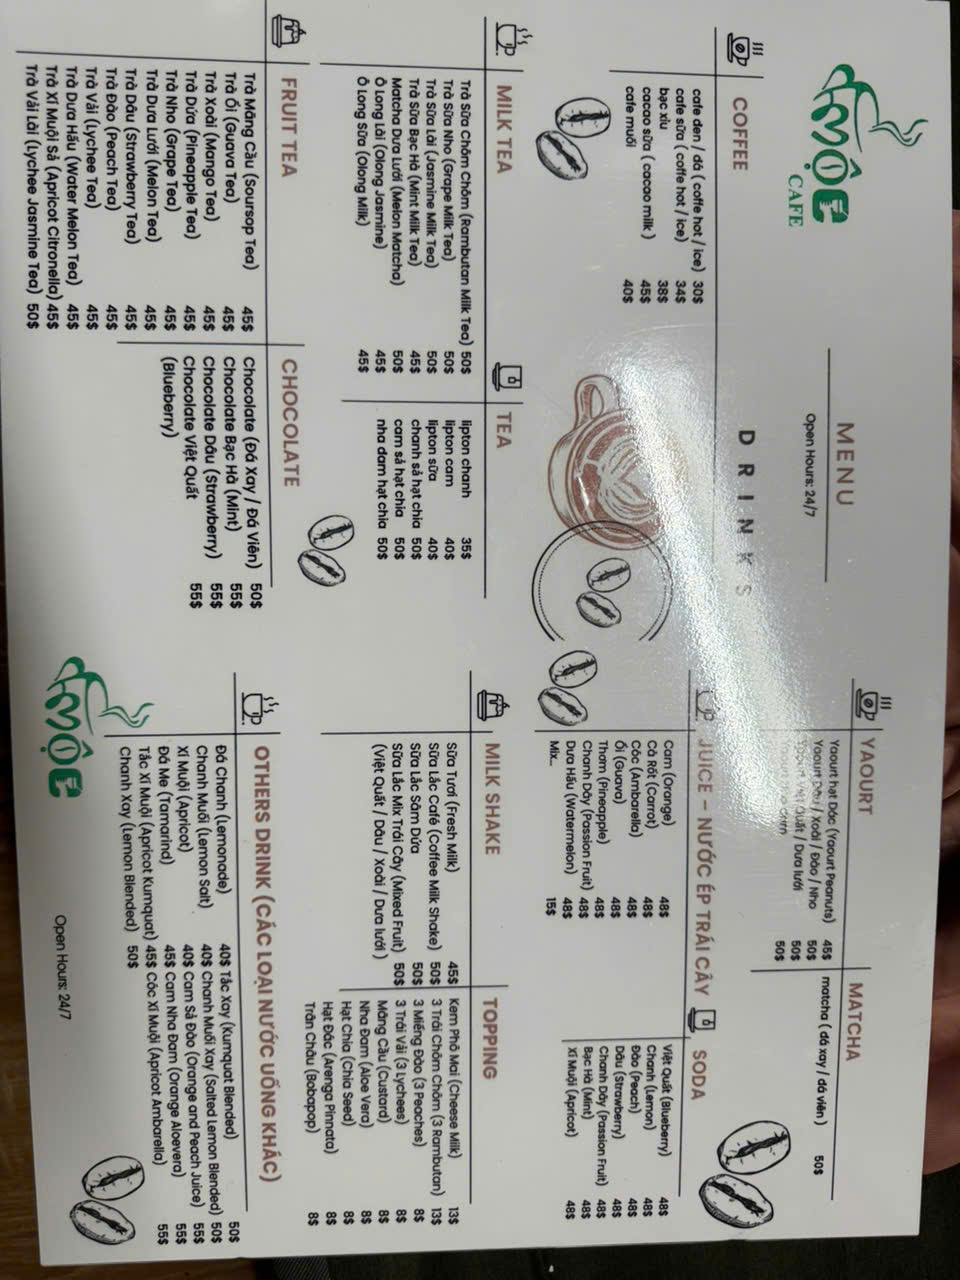 MỘC
CAFE
MENU
Open Hours: 24/7
DRINKS
COFFEE
cafe đen / đá ( coffe hot / ice) 30$
cafe sữa ( coffe hot / ice) 34$
bạc xỉu 38$
cacao sữa ( cacao milk ) 45$
cafe muối 40$
MILK TEA
Trà Sữa Chôm Chôm (Rambutan Milk Tea) 50$
Trà Sữa Nho (Grape Milk Tea) 50$
Trà Sữa Lài (Jasmine Milk Tea) 50$
Trà Sữa Bạc Hà (Mint Milk Tea) 45$
Matcha Dưa Lưới (Melon Matcha) 50$
Ô Long Lài (Olong Jasmine) 45$
Ô Long Sữa (Olong Milk) 45$
TEA
lipton chanh 35$
lipton cam 40$
lipton sữa 40$
chanh sả hạt chia 50$
cam sả hạt chia 50$
nha đam hạt chia 50$
FRUIT TEA
Trà Mãng Cầu (Soursop Tea) 45$
Trà Ổi (Guava Tea) 45$
Trà Xoài (Mango Tea) 45$
Trà Dứa (Pineapple Tea) 45$
Trà Nho (Grape Tea) 45$
Trà Dưa Lưới (Melon Tea) 45$
Trà Dâu (Strawberry Tea) 45$
Trà Đào (Peach Tea) 45$
Trà Vải (Lychee Tea) 45$
Trà Dưa Hấu (Water Melon Tea) 45$
Trà Xí Muội Sả (Apricot Citronella) 45$
Trà Vải Lài (Lychee Jasmine Tea) 50$
CHOCOLATE
Chocolate (Đá Xay / Đá Viên) 50$
Chocolate Bạc Hà (Mint) 55$
Chocolate Dâu (Strawberry) 55$
Chocolate Việt Quất 55$
(Blueberry)
YAOURT
Yaourt hạt Dác (Yaourt Peanuts) 45$
Yaourt Dâu / Xoài / Đào / Nho 50$
Quất / Dưa lưới 50$
50$
MATCHA
matcha ( đá xay / đá viên ) 50$
JUICE - NƯỚC ÉP TRÁI CÂY
Cam (Orange) 48$
Cà Rốt (Carrot) 48$
Cóc (Ambarella) 48$
Ổi (Guava) 48$
Thơm (Pineapple) 48$
Chanh Dây (Passion Fruit) 48$
Dưa Hấu (Watermelon) 48$
Mix... 15$
SODA
Việt Quất (Blueberry) 48$
Chanh (Lemon) 48$
Đào (Peach) 48$
Dâu (Strawberry) 48$
Chanh Dây (Passion Fruit) 48$
Bạc Hà (Mint) 48$
Xí Muội (Apricot) 48$
MILK SHAKE
Sữa Tươi (Fresh Milk) 45$
Sữa Lắc Café (Coffee Milk Shake) 50$
Sữa Lắc Sầm Dứa 50$
Sữa Lắc Mix Trái Cây (Mixed Fruit) 50$
(Việt Quất / Dâu / Xoài / Dưa lưới )
TOPPING
Kem Phô Mai (Cheese Milk) 13$
3 Trái Chôm Chôm (3 Rambutan) 13$
3 Miếng Đào (3 Peaches) 8$
3 Trái Vải (3 Lychees) 8$
Mãng Cầu (Custard) 8$
Nha Đam (Aloe Vera) 8$
Hạt Chia (Chia Seed) 8$
Hạt Đác (Arenga Pinnata) 8$
Trân Châu (Bobapop) 8$
OTHERS DRINK (CÁC LOẠI NƯỚC UỐNG KHÁC)
Đá Chanh (Lemonade) 40$
Chanh Muối (Lemon Salt) 40$
Xí Muội (Apricot) 40$
Đá Me (Tamarind) 45$
Tắc Xí Muội (Apricot Kumquat) 45$
Chanh Xay (Lemon Blended) 50$
Tắc Xay (Kumquat Blended) 50$
Chanh Muối Xay (Salted Lemon Blended) 50$
Cam Sả Đào (Orange and Peach Juice) 55$
Cam Nha Đam (Orange Aloevera) 55$
Cóc Xí Muội (Apricot Ambarella) 55$
MỘC
Open Hours: 24/7